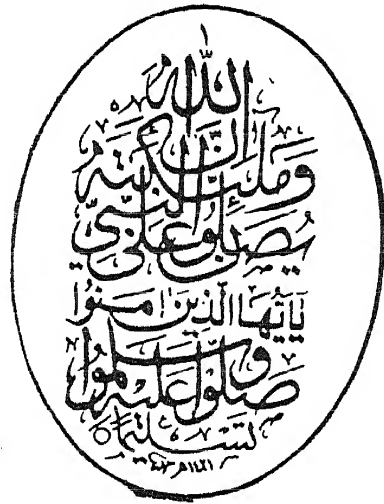 اِنَّ اللّٰهَ
وَمَلٰٓئِكَتَهُ
يُصَلُّوْنَ عَلَى النَّبِيِّ
يٰٓاَيُّهَا الَّذِيْنَ اٰمَنُوْا
صَلُّوْا عَلَيْهِ وَسَلِّمُوْا
تَسْلِيْمًا